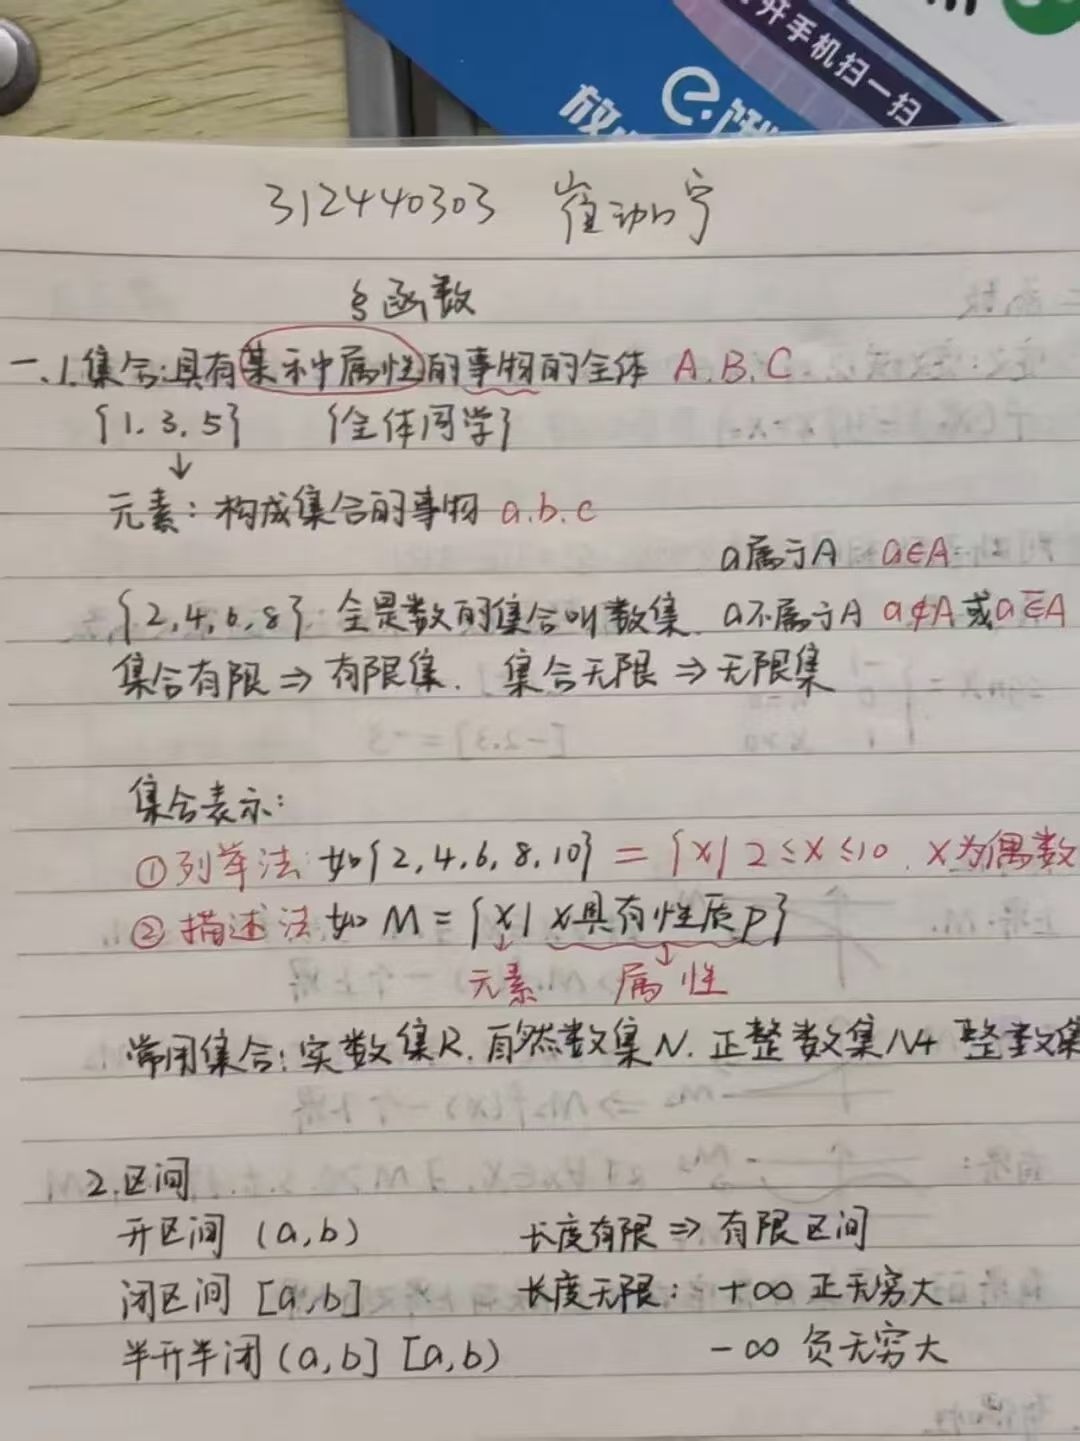 开手机扫一扫
放
312440303 崔动宁
§函数
一.1.集合:具有某种属性的事物的全体 A.B.C
{1.3.5} {全体同学}
↓
元素:构成集合的事物 a.b.c
a属于A a∈A
{2,4,6,8} 全是数的集合叫数集. a不属于A a∉A或a∈̅A
集合有限⇒有限集. 集合无限⇒无限集
集合表示:
①列举法 如{2,4,6,8,10} = {x| 2≤x≤10. x为偶数
②描述法 如 M={x| x具有性质P}
↓ ↓
元素 属性
常用集合:实数集R.自然数集N.正整数集N+ 整数集
2.区间
开区间 (a,b) 长度有限⇒有限区间
闭区间 [a,b] 长度无限: +∞ 正无穷大
半开半闭(a,b] [a,b) -∞ 负无穷大